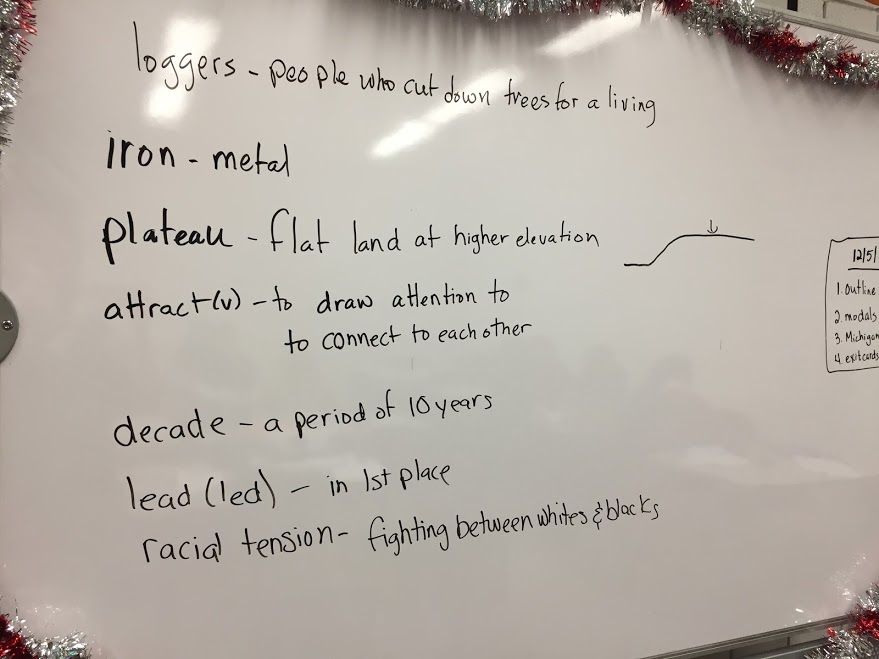 loggers - people who cut down trees for a living
iron - metal
plateau - flat land at higher elevation
attract (v) - to draw attention to
to connect to each other
decade - a period of 10 years
lead (led) - in 1st place
racial tension - fighting between whites & blacks
12/5/
1. outline
2. modals
3. Michigan
4. exit cards